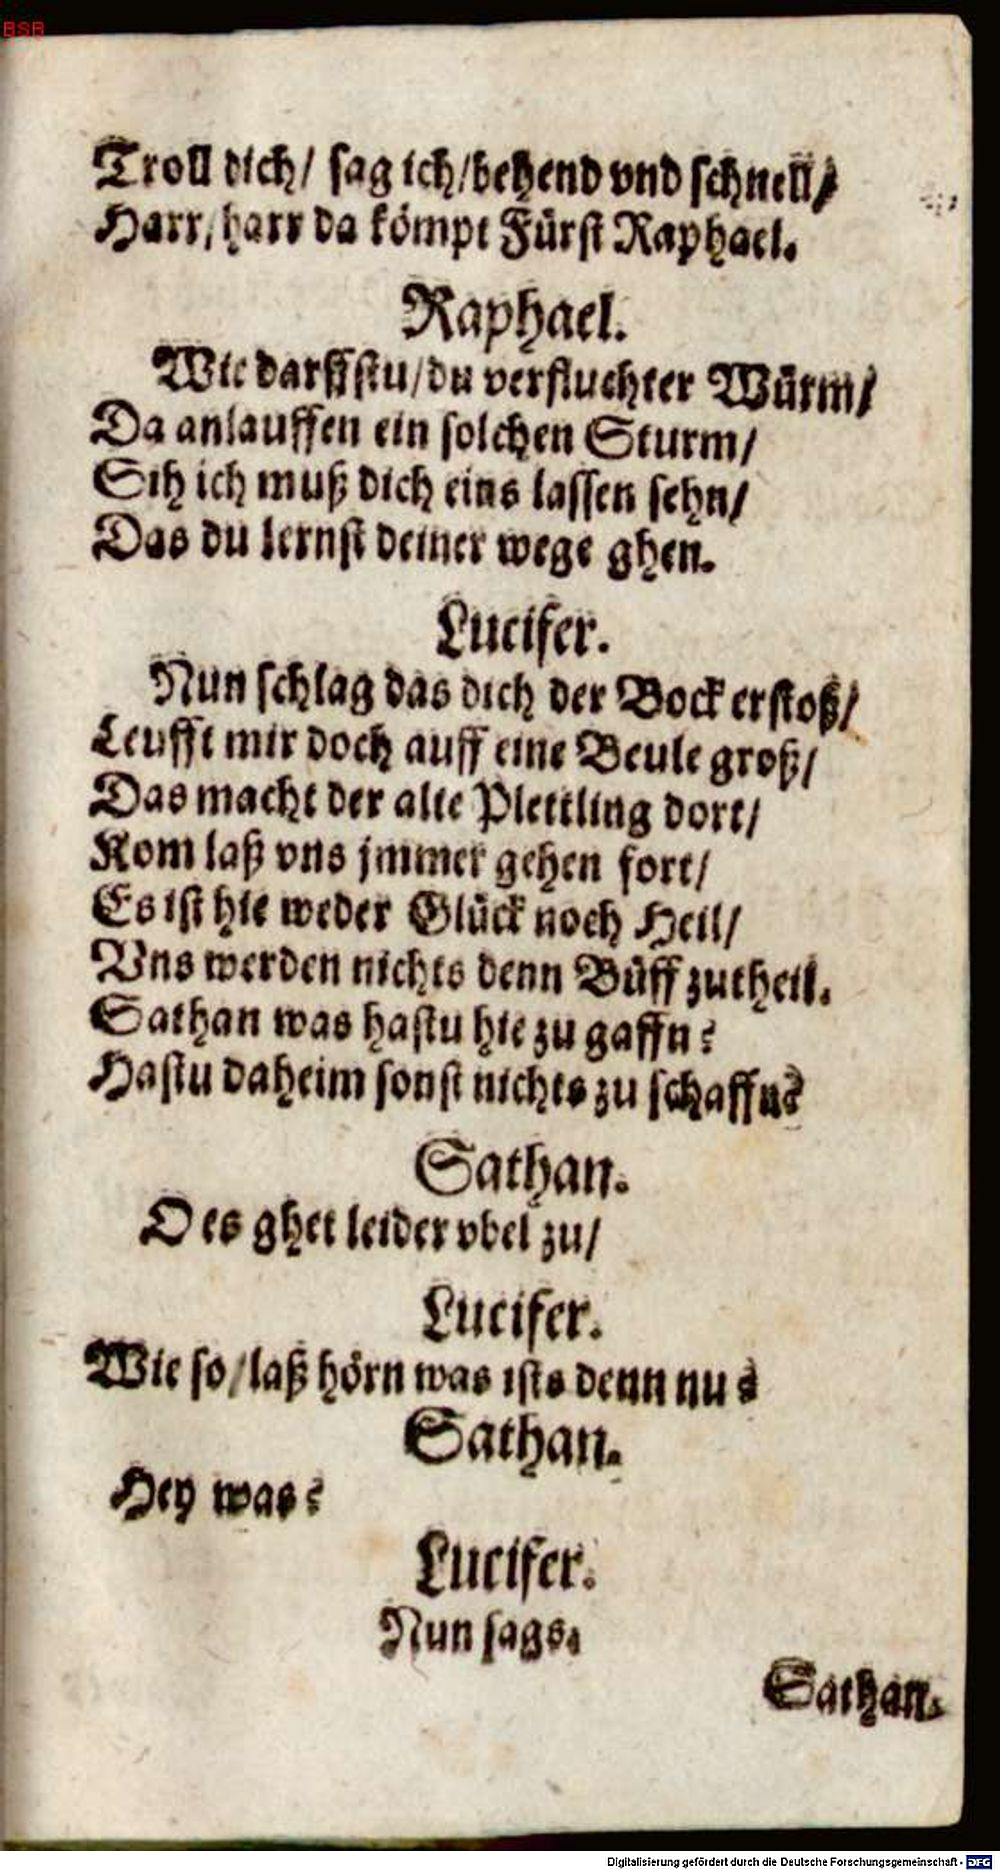 BSB
Troll dich/ sag ich/behend vnd schnell/
Harr/harr da kömpt Fürst Raphael.
Raphael.
Wie darffstu/du verfluchter Würm/
Da anlauffen ein solchen Sturm/
Sih ich muß dich eins lassen sehn/
Das du lernst deiner wege ghen.
Lucifer.
Nun schlag das dich der Bock erstoß/
Leufft mir doch auff eine Beule groß/
Das macht der alte Plettling dort/
Kom laß vns jmmer gehen fort/
Es ist hie weder Glück noch Heil/
Vns werden nichts denn Büff zutheil.
Sathan was hastu hie zu gaffn?
Hastu daheim sonst nichts zu schaffn?
Sathan.
O es ghet leider vbel zu/
Lucifer.
Wie so/laß hörn was ists denn nu?
Sathan.
Hey was?
Lucifer.
Nun sags.
Sathan.
Digitalisierung gefördert durch die Deutsche Forschungsgemeinschaft - DFG